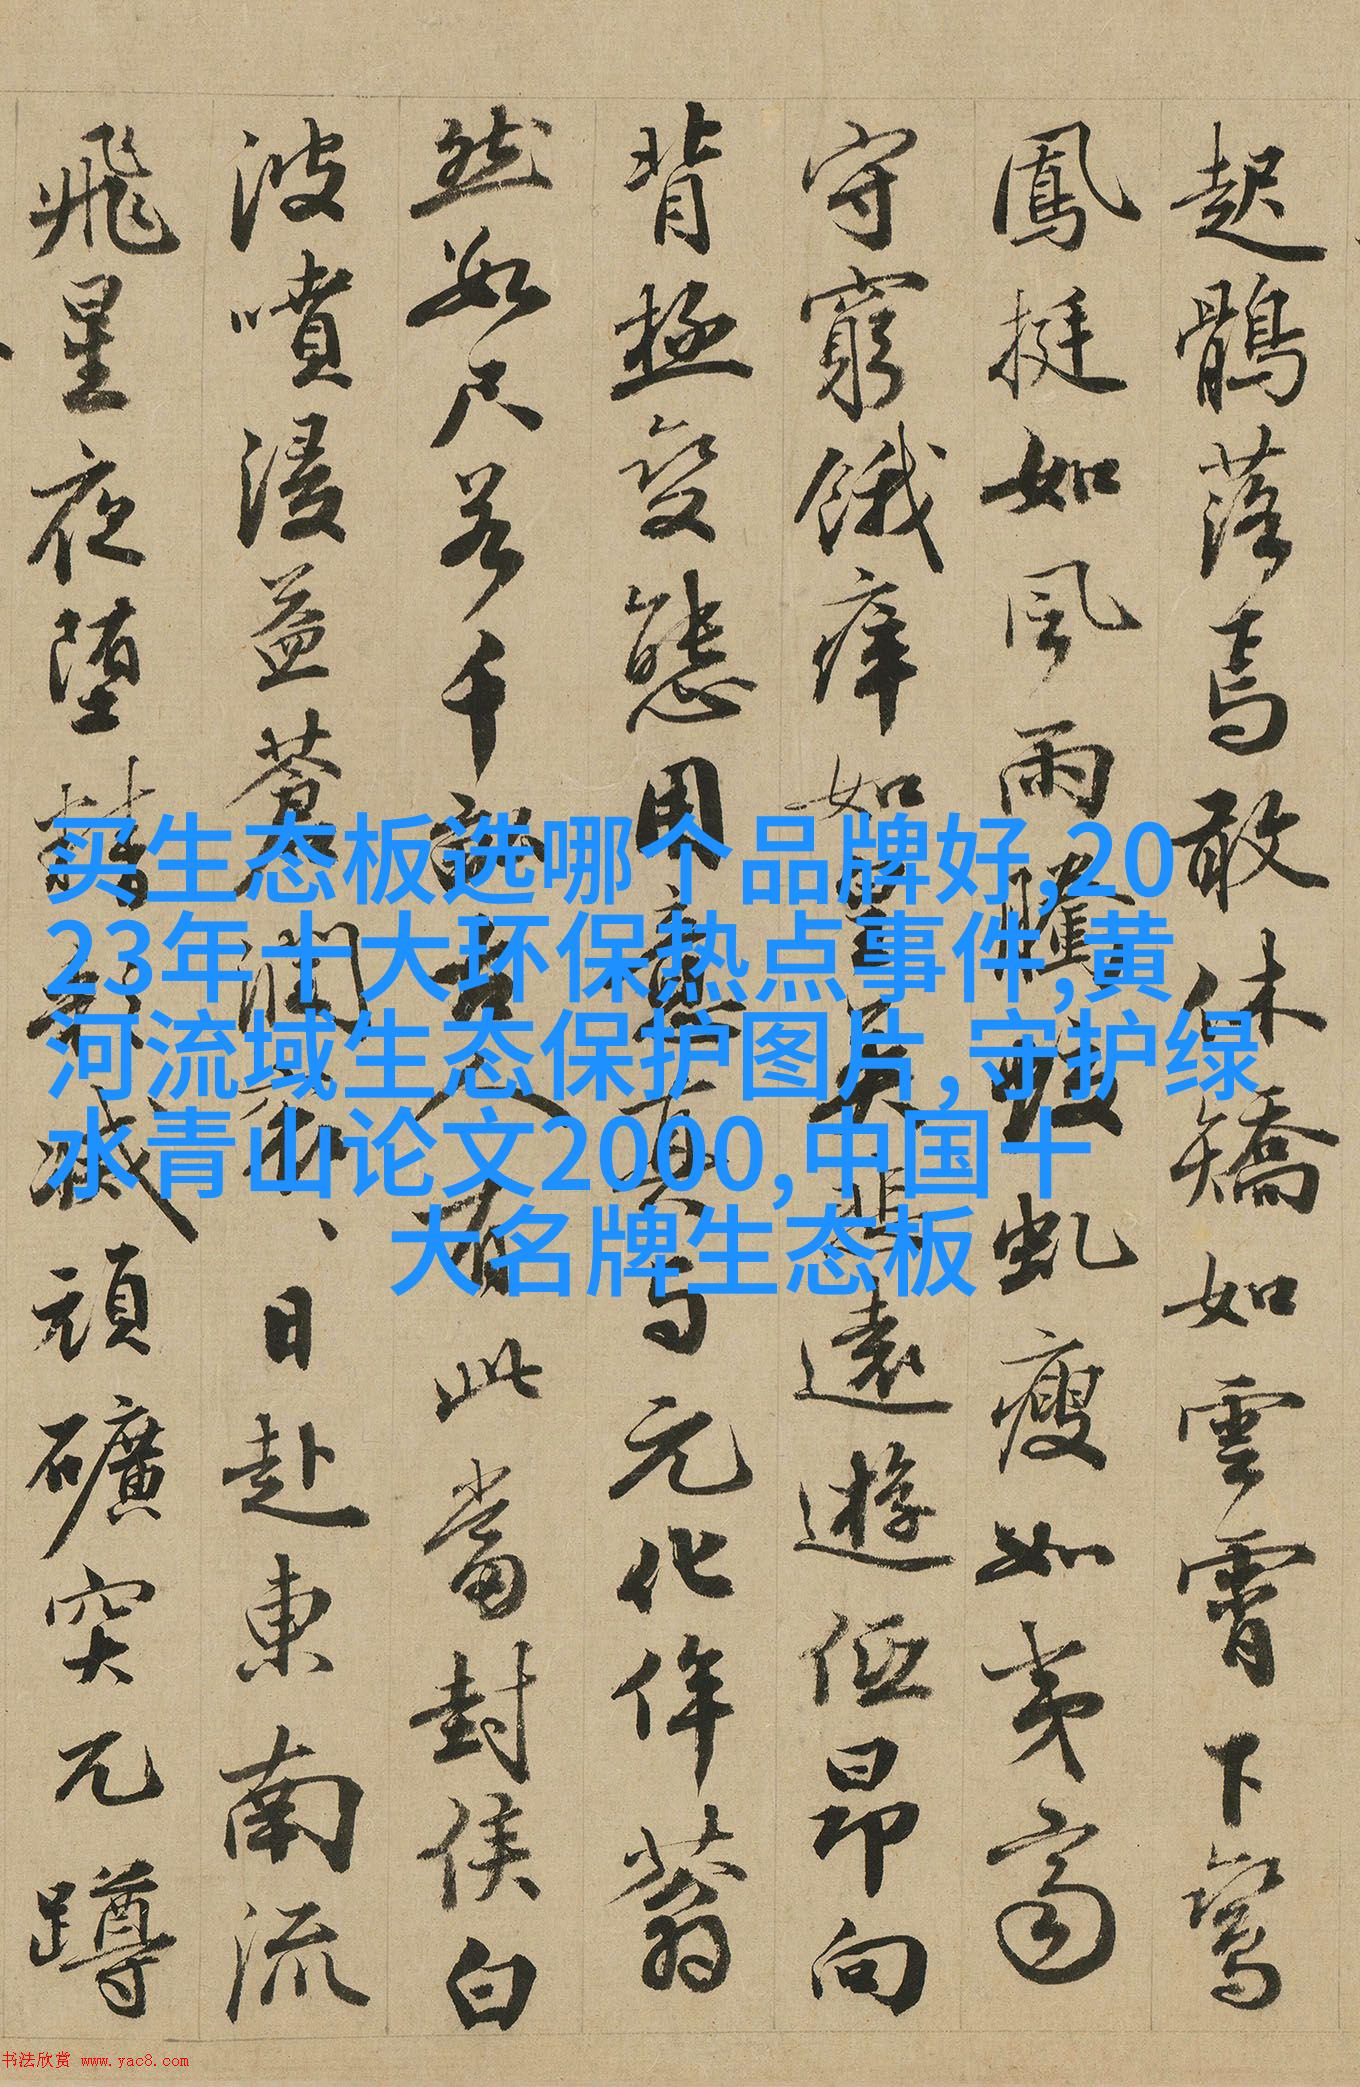 起鶻落焉敢休矯如雲霄下鸞
鳳挺如風雨騰蛟虬瘦如夷齊
守窮餓癢如
遠遊低昂向
背極變態用意真与元化侔蒼
然數尺若千
古人有此當封侯白
波噴浸益
潤
日赴東南流
飛星夜墮
精
不滅頑礦突兀蹲
买生态板选哪个品牌好,20
23年十大环保热点事件,黄
河流域生态保护图片,守护绿
水青山论文2000,中国十
大名牌生态板
书法欣赏 www.yac8.com